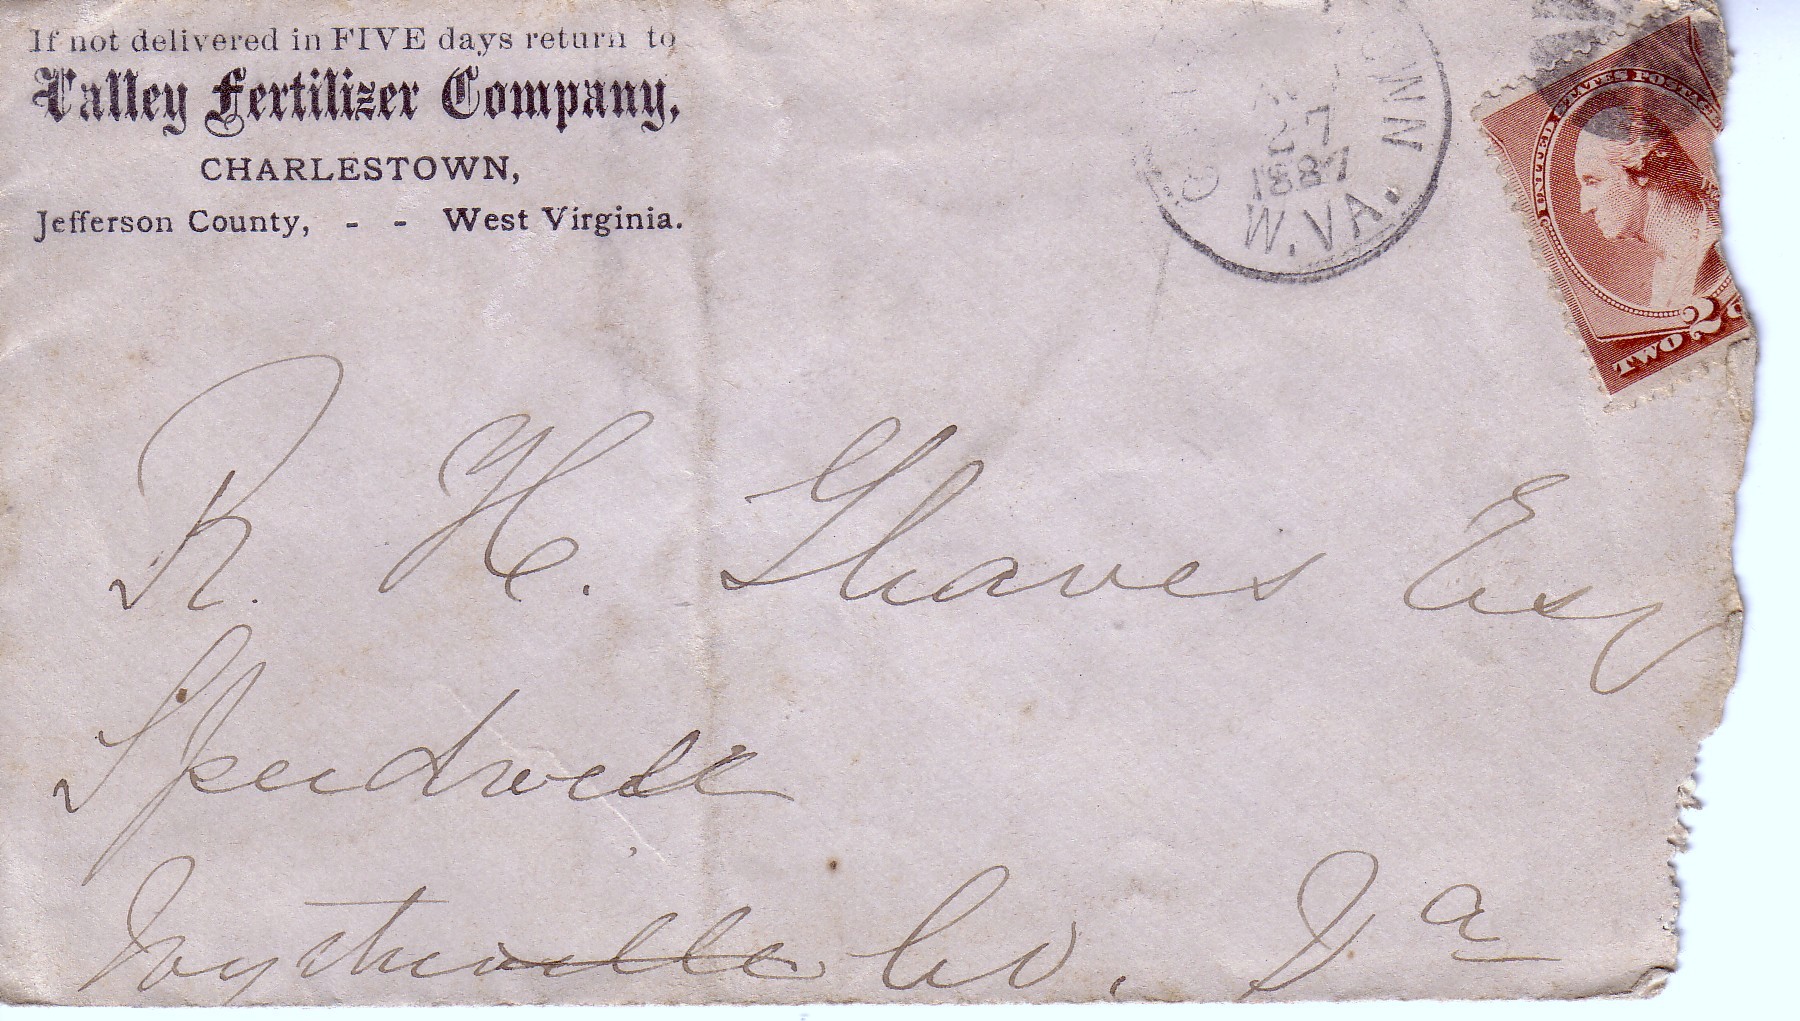 If not delivered in FIVE days return to
Valley Fertilizer Company,
CHARLESTOWN,
Jefferson County, - - West Virginia.
27
1887
W. VA.
UNITED STATES POSTAGE
2
TWO
R. H. Graves Esq
Speedwell
Wytheville Co. Va